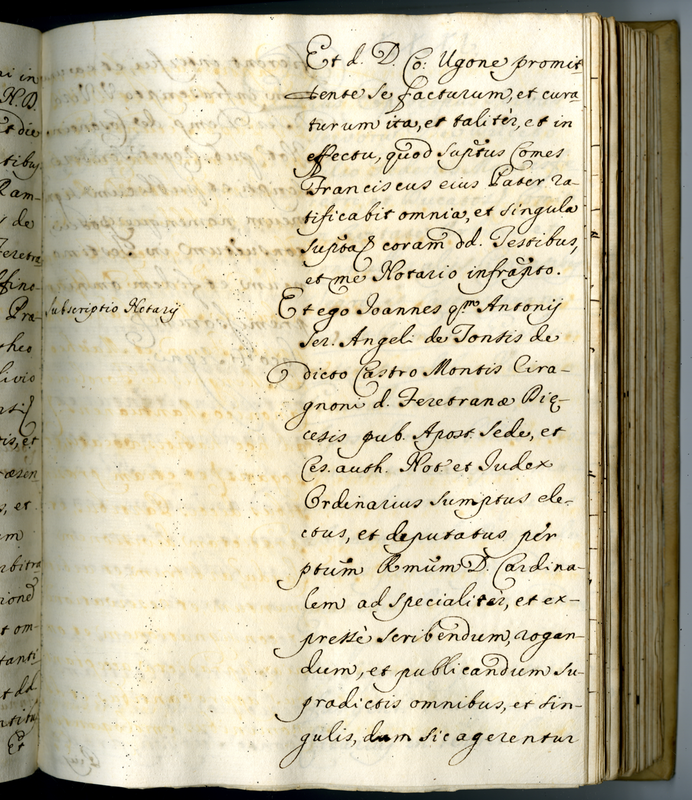 Et d. D. Co: Ugone promit
tente se facturum, et cura
turum ita, et taliter, et in
effectu, quod sup̃tus Comes
Franciscus eius Pater ra-
tificabit omnia, et singula
sup̃ta coram dd. Testibus,
et me Notario infrap̃to.
Subscriptio Notarij
Et ego Joannes qm̃ Antonij
Ser. Angeli de Tontis de
dicto Castro Montis Cira-
gnoni d. Feretranæ Dię-
cesis pub. Apost. Sede, et
Ces. auth. Not. et Judex
Ordinarius sumptus ele-
ctus, et deputatus per
ptum Rmũm D. Cardina-
lem ad specialiter, et ex-
presse scribendum, rogan-
dum, et publicandum su-
pradictis omnibus, et sin-
gulis, dum sic agerentur
ni in
N. D.
et die
tibus
Ram-
de
Feretra
ffino
Pra-
theo
livio
tis, et
s, et
um
rbitra
t om-
tanti
et dd.
Et